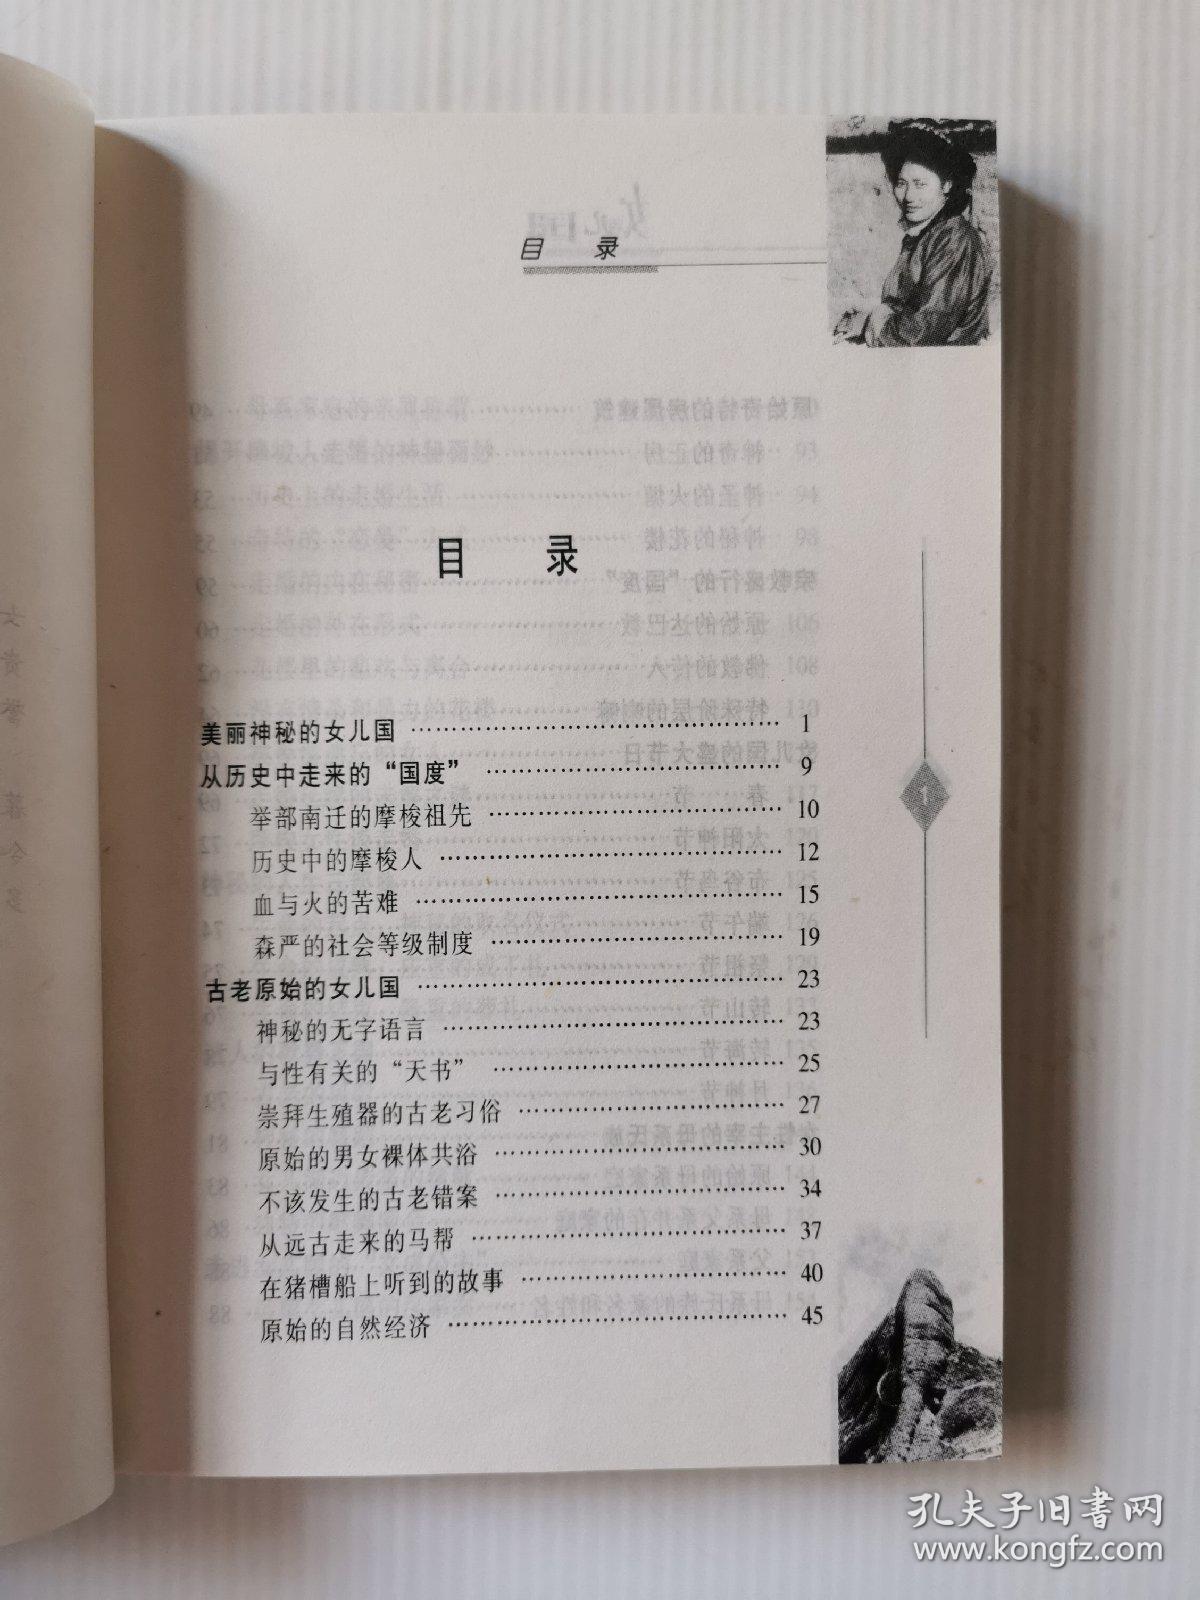 目 录
目 录
美丽神秘的女儿国 …………………………………… 1
从历史中走来的“国度” …………………………… 9
举部南迁的摩梭祖先 ……………………………… 10
历史中的摩梭人 …………………………………… 12
血与火的苦难 ……………………………………… 15
森严的社会等级制度 ……………………………… 19
古老原始的女儿国 ………………………………… 23
神秘的无字语言 …………………………………… 23
与性有关的“天书” ……………………………… 25
崇拜生殖器的古老习俗 …………………………… 27
原始的男女裸体共浴 ……………………………… 30
不该发生的古老错案 ……………………………… 34
从远古走来的马帮 ………………………………… 37
在猪槽船上听到的故事 …………………………… 40
原始的自然经济 …………………………………… 45
1
孔夫子旧书网
www.kongfz.com